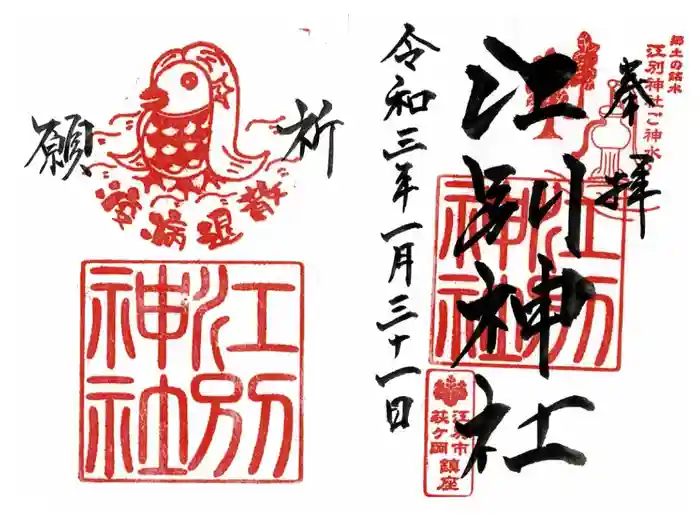 奉拝
郷土の銘木
江別神社ご神水
江別神社
江別神社
江別市
萩ケ岡
鎮座
令和三年一月三十一日
祈願
疫病退散
江別神社